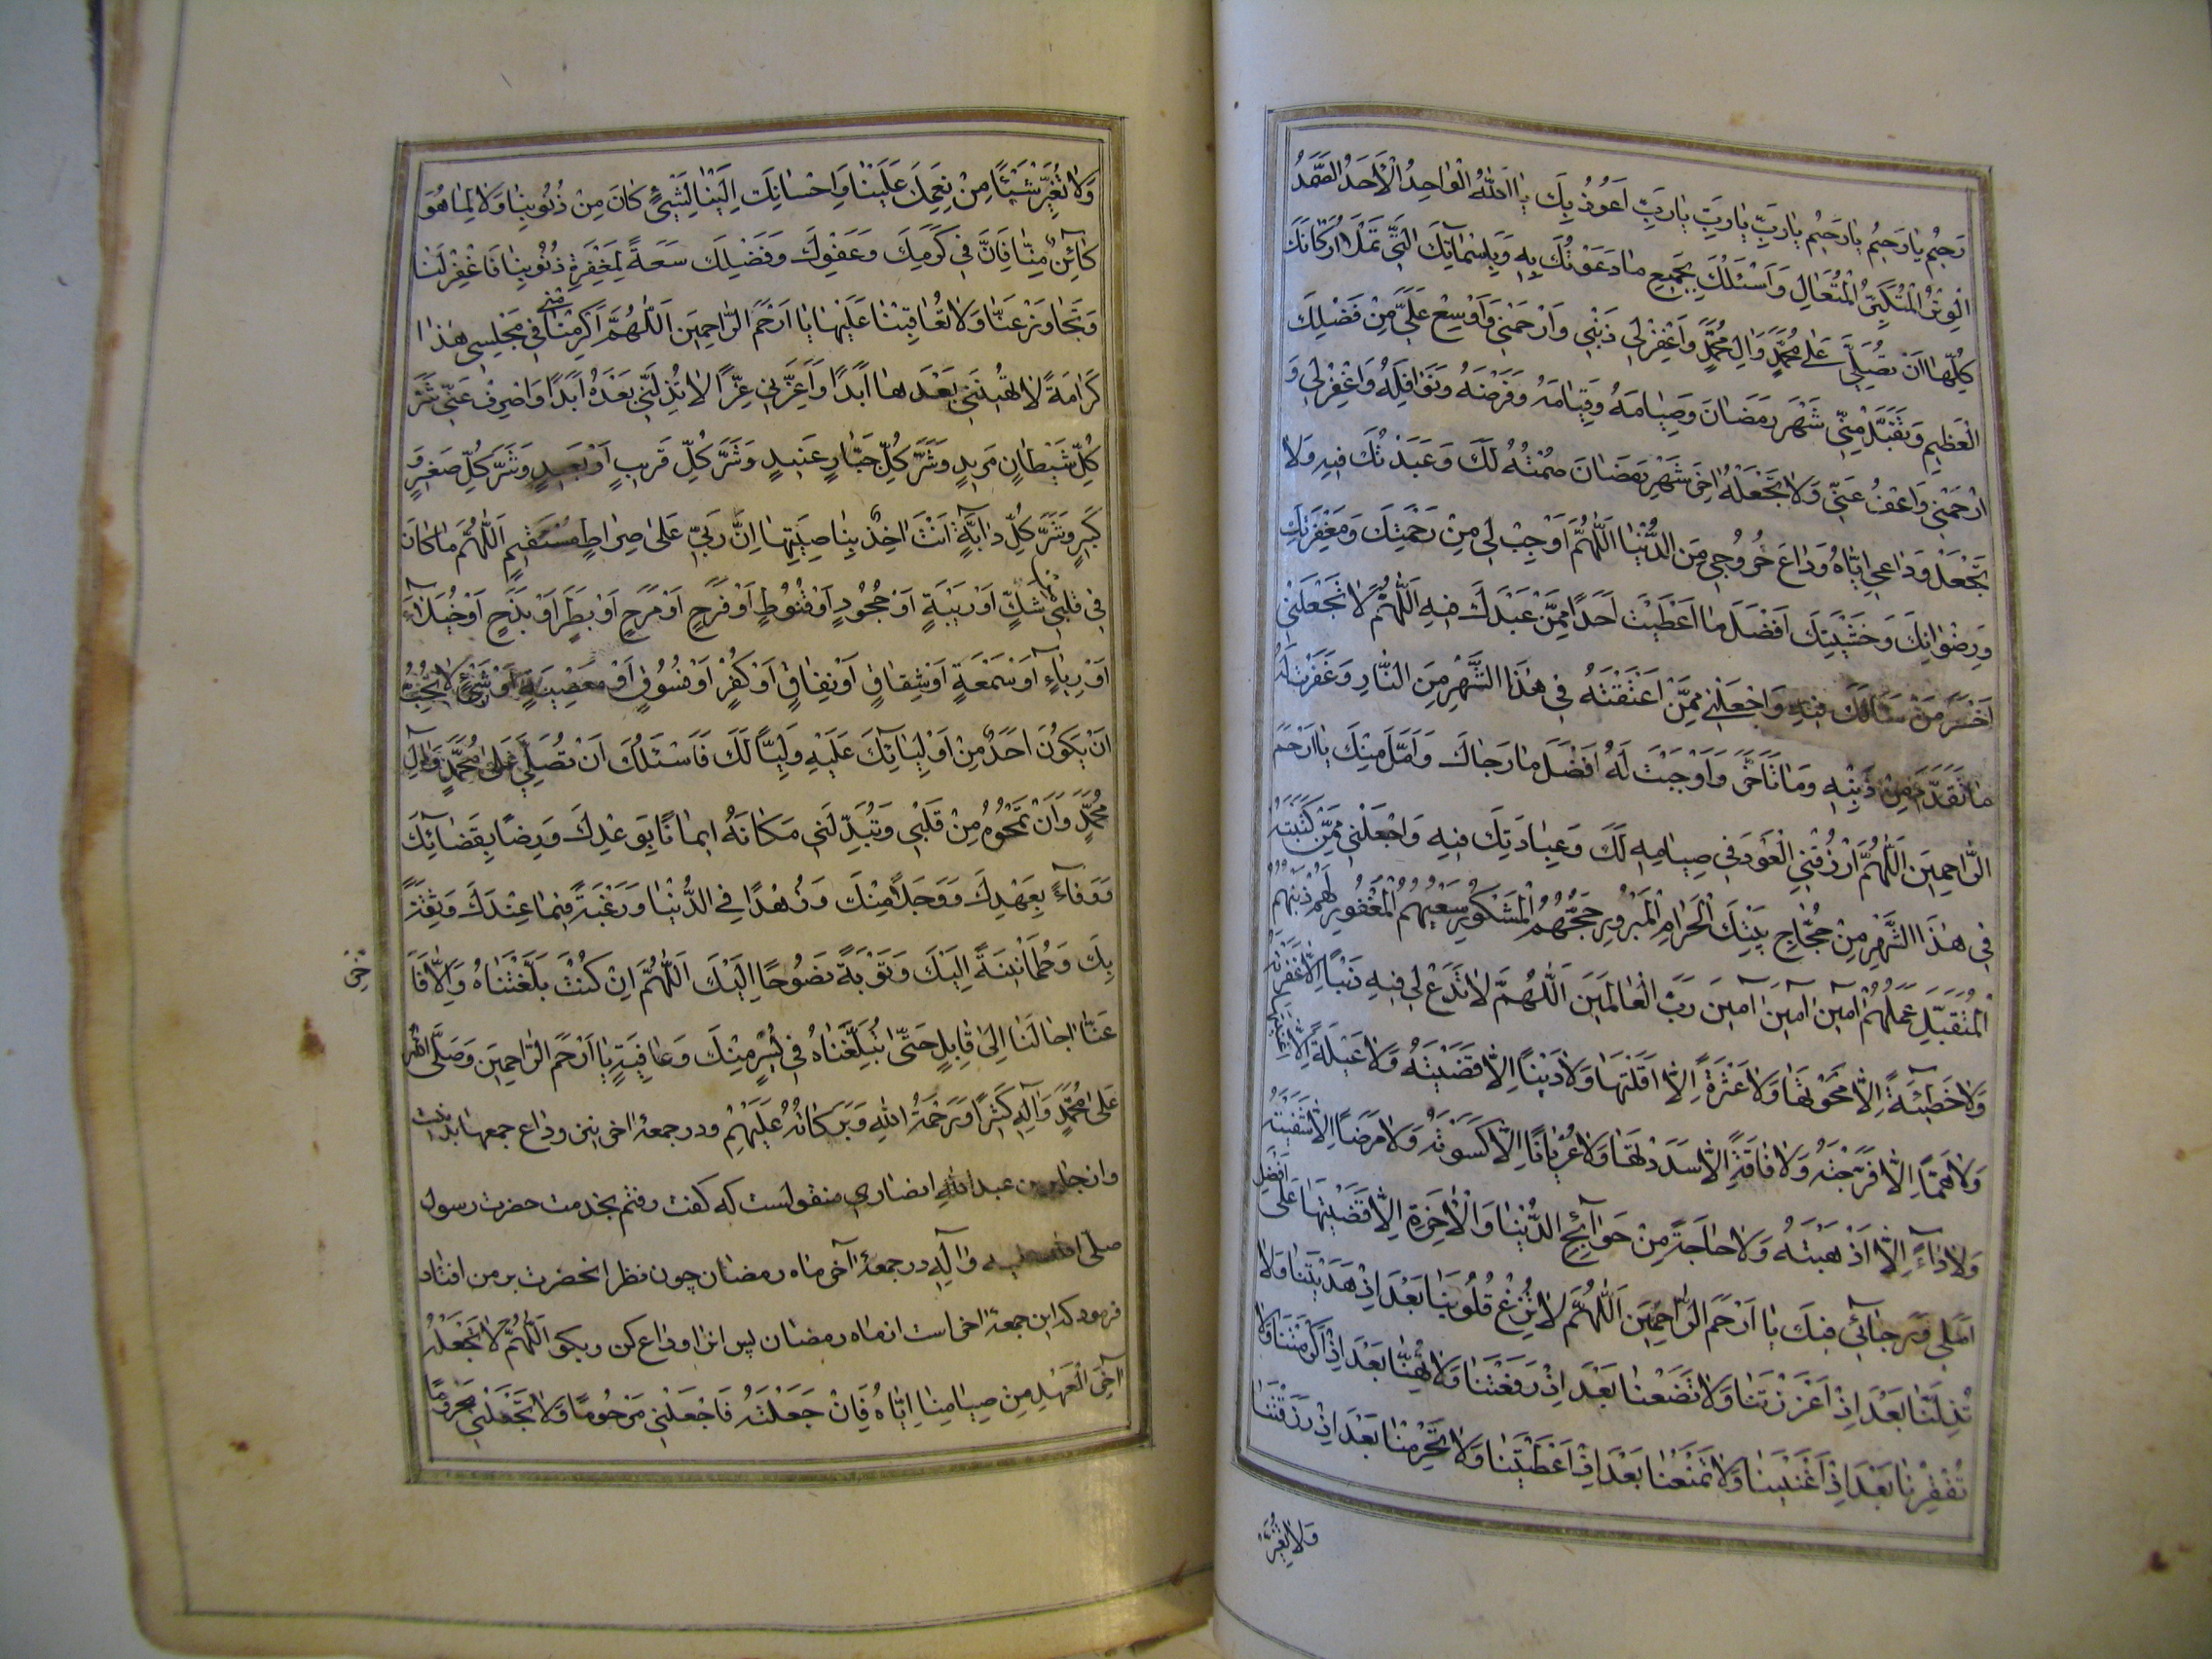 رَحِيمُ يٰا رَحِيمُ يٰا رَحِيمُ يٰا رَبِّ يٰا رَبِّ يٰا رَبِّ اَعُوذُ بِكَ يٰا اَللّٰهُ الْوٰاحِدُ الْاَحَدُ الصَّمَدُ
الْوِتْرُ الْمُتَكَبِّرُ الْمُتَعٰالِ وَاَسْئَلُكَ بِجَمِيعِ مٰا دَعَوْتُكَ بِهِ وَبِاَسْمٰآئِكَ الَّتِي تَمْلَاُ اَرْكٰانَكَ
كُلِّهٰا اَنْ تُصَلِّيَ عَلٰى مُحَمَّدٍ وَاٰلِ مُحَمَّدٍ وَاغْفِرْ لِي ذَنْبِي وَارْحَمْنِي وَاَوْسِعْ عَلَيَّ مِنْ فَضْلِكَ
الْعَظِيمِ وَتَقَبَّلْ مِنِّي شَهْرَ رَمَضٰانَ وَصِيٰامَهُ وَقِيٰامَهُ وَفَرْضَهُ وَنَوٰافِلَهُ وَاغْفِرْ لِي وَ
ارْحَمْنِي وَاعْفُ عَنِّي وَلٰا تَجْعَلْهُ اٰخِرَ شَهْرِ رَمَضٰانَ صُمْتُهُ لَكَ وَعَبَدْتُكَ فِيهِ وَلٰا
تَجْعَلْ وَدٰاعِي اِيّٰاهُ وَدٰاعَ خُرُوجِي مِنَ الدُّنْيٰا اَللّٰهُمَّ اَوْجِبْ لِي مِنْ رَحْمَتِكَ وَمَغْفِرَتِكَ
وَرِضْوٰانِكَ وَخَشْيَتِكَ اَفْضَلَ مٰا اَعْطَيْتَ اَحَدًا مِمَّنْ عَبَدَكَ فِيهِ اَللّٰهُمَّ لٰا تَجْعَلْنِي
اَخْسَرَ مَنْ سَاَلَكَ فِيهِ وَاجْعَلْنِي مِمَّنْ اَعْتَقْتَهُ فِي هٰذَا الشَّهْرِ مِنَ النّٰارِ وَغَفَرْتَ لَهُ
مٰا تَقَدَّمَ مِنْ ذَنْبِهِ وَمٰا تَاَخَّرَ وَاَوْجَبْتَ لَهُ اَفْضَلَ مٰا رَجٰاكَ وَاَمَّلَ مِنْكَ يٰا اَرْحَمَ
الرّٰاحِمِينَ اَللّٰهُمَّ ارْزُقْنِي الْعَوْدَ فِي صِيٰامِهِ لَكَ وَعِبٰادَتِكَ فِيهِ وَاجْعَلْنِي مِمَّنْ كَتَبْتَهُ
فِي هٰذَا الشَّهْرِ مِنْ حُجّٰاجِ بَيْتِكَ الْحَرٰامِ الْمَبْرُورِ حَجُّهُمُ الْمَشْكُورِ سَعْيُهُمُ الْمَغْفُورِ لَهُمْ ذَنْبُهُمُ
الْمُتَقَبَّلِ عَمَلُهُمْ اٰمِينَ اٰمِينَ اٰمِينَ رَبَّ الْعٰالَمِينَ اَللّٰهُمَّ لٰا تَدَعْ لِي فِيهِ ذَنْبًا اِلّٰا غَفَرْتَهُ
وَلٰا خَطِيئَةً اِلّٰا مَحَوْتَهٰا وَلٰا عَثْرَةً اِلّٰا اَقَلْتَهٰا وَلٰا دَيْنًا اِلّٰا قَضَيْتَهُ وَلٰا عَيْلَةً اِلّٰا اَغْنَيْتَهٰا
وَلٰا هَمًّا اِلّٰا فَرَّجْتَهُ وَلٰا فٰاقَةً اِلّٰا سَدَدْتَهٰا وَلٰا عُرْيٰانًا اِلّٰا كَسَوْتَهُ وَلٰا مَرَضًا اِلّٰا شَفَيْتَهُ
وَلٰا دٰآءً اِلّٰا اَذْهَبْتَهُ وَلٰا حٰاجَةً مِنْ حَوٰآئِجِ الدُّنْيٰا وَالْاٰخِرَةِ اِلّٰا قَضَيْتَهٰا عَلٰى اَفْضَلِ
اَمَلِي وَرَجٰآئِي فِيكَ يٰا اَرْحَمَ الرّٰاحِمِينَ اَللّٰهُمَّ لٰا تُزِغْ قُلُوبَنٰا بَعْدَ اِذْ هَدَيْتَنٰا وَلٰا
تُذِلَّنٰا بَعْدَ اِذْ اَعْزَزْتَنٰا وَلٰا تَضَعْنٰا بَعْدَ اِذْ رَفَعْتَنٰا وَلٰا تُهِنّٰا بَعْدَ اِذْ اَكْرَمْتَنٰا وَلٰا
تُفْقِرْنٰا بَعْدَ اِذْ اَغْنَيْتَنٰا وَلٰا تَمْنَعْنٰا بَعْدَ اِذْ اَعْطَيْتَنٰا وَلٰا تَحْرِمْنٰا بَعْدَ اِذْ رَزَقْتَنٰا
وَلٰا تُغَيِّرْ
وَلٰا تُغَيِّرْ شَيْئًا مِنْ نِعَمِكَ عَلَيْنٰا وَاِحْسٰانِكَ اِلَيْنٰا لِشَيْءٍ كٰانَ مِنْ ذُنُوبِنٰا وَلٰا لِمٰا هُوَ
كٰآئِنٌ مِنّٰا فَاِنَّ فِي كَرَمِكَ وَعَفْوِكَ وَفَضْلِكَ سَعَةً لِمَغْفِرَةِ ذُنُوبِنٰا فَاغْفِرْ لَنٰا
وَتَجٰاوَزْ عَنّٰا وَلٰا تُعٰاقِبْنٰا عَلَيْهٰا يٰا اَرْحَمَ الرّٰاحِمِينَ اَللّٰهُمَّ اَكْرِمْنٰا فِي مَجْلِسِي هٰذٰا
كَرٰامَةً لٰا تُهِينُنِي بَعْدَهٰا اَبَدًا وَاَعِزَّنِي عِزًّا لٰا تُذِلُّنِي بَعْدَهُ اَبَدًا وَاصْرِفْ عَنِّي شَرَّ
كُلِّ شَيْطٰانٍ مَرِيدٍ وَشَرَّ كُلِّ جَبّٰارٍ عَنِيدٍ وَشَرَّ كُلِّ قَرِيبٍ اَوْ بَعِيدٍ وَشَرَّ كُلِّ صَغِيرٍ وَ
كَبِيرٍ وَشَرَّ كُلِّ دٰآبَّةٍ اَنْتَ اٰخِذٌ بِنٰاصِيَتِهٰا اِنَّ رَبِّي عَلٰى صِرٰاطٍ مُسْتَقِيمٍ اَللّٰهُمَّ مٰا كٰانَ
فِي قَلْبِي شَكٍّ اَوْ رِيبَةٍ اَوْ جُحُودٍ اَوْ قُنُوطٍ اَوْ فَرَحٍ اَوْ مَرَحٍ اَوْ بَطَرٍ اَوْ بَذَخٍ اَوْ خُيَلٰآءَ
اَوْ رِيٰآءٍ اَوْ سُمْعَةٍ اَوْ شِقٰاقٍ اَوْ نِفٰاقٍ اَوْ كُفْرٍ اَوْ فُسُوقٍ اَوْ مَعْصِيَةٍ اَوْ شَيْءٍ لٰا تُحِبُّ
اَنْ يَكُونَ اَحَدٌ مِنْ اَوْلِيٰآئِكَ عَلَيْهِ وَلِيًّا لَكَ فَاَسْئَلُكَ اَنْ تُصَلِّيَ عَلٰى مُحَمَّدٍ وَاٰلِ
مُحَمَّدٍ وَاَنْ تَمْحُوَهُ مِنْ قَلْبِي وَتُبَدِّلَنِي مَكٰانَهُ اِيمٰانًا بِوَعْدِكَ وَرِضًا بِقَضٰآئِكَ
وَوَفٰآءً بِعَهْدِكَ وَوَجَلًا مِنْكَ وَزُهْدًا فِي الدُّنْيٰا وَرَغْبَةً فِيمٰا عِنْدَكَ وَثِقَةً
بِكَ وَطُمَاْنِينَةً اِلَيْكَ وَتَوْبَةً نَصُوحًا اِلَيْكَ اَللّٰهُمَّ اِنْ كُنْتَ بَلَّغْتَنٰاهُ وَاِلّٰا فَاَ
خِّرْ
عَنّٰا اٰجٰالَنٰا اِلٰى قٰابِلٍ حَتّٰى تُبَلِّغَنٰاهُ فِي يُسْرٍ مِنْكَ وَعٰافِيَةٍ يٰا اَرْحَمَ الرّٰاحِمِينَ وَصَلَّى اللّٰهُ
عَلٰى مُحَمَّدٍ وَاٰلِهِ كَثِيرًا وَرَحْمَةُ اللّٰهِ وَبَرَكٰاتُهُ عَلَيْهِمْ و در جمعهٔ اخرین وداع جمعها بدنیت
و از جابر بن عبدالله انصاری منقولست که گفت رفتم بخدمت حضرت رسول
صلی الله علیه وَاٰلِهِ در جمعهٔ آخر ماه رمضان چون نظر انحضرت بر من افتاد
فرمود که این جمعهٔ اخر است از ماه رمضان پس انرا وداع کن و بگو اَللّٰهُمَّ لٰا تَجْعَلْهُ
اٰخِرَ الْعَهْدِ مِنْ صِيٰامِنٰا اِيّٰاهُ فَاِنْ جَعَلْتَهُ فَاجْعَلْنِي مَرْحُومًا وَلٰا تَجْعَلْنِي مَحْرُومًا